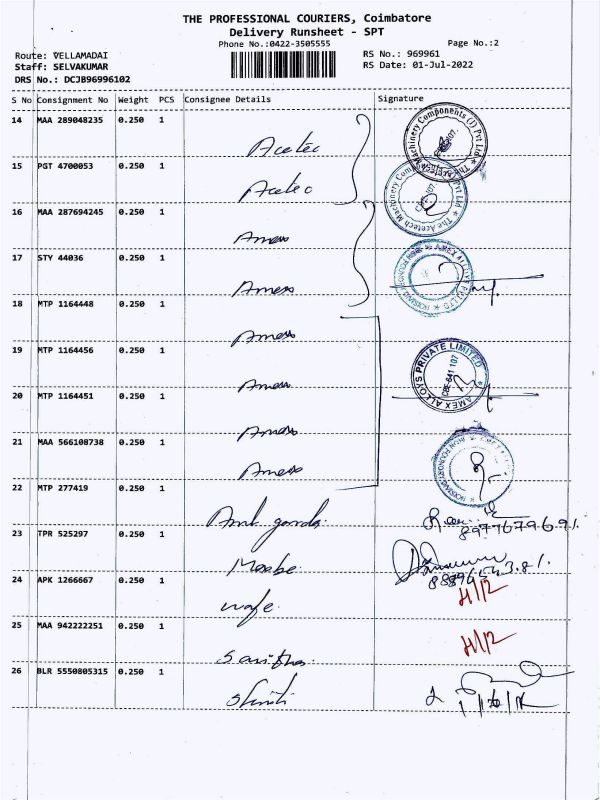 THE PROFESSIONAL COURIERS, Coimbatore
Delivery Runsheet - SPT
Phone No.:0422-3505555
Page No.:2
Route: VELLAMADAI
RS No.: 969961
Staff: SELVAKUMAR
RS Date: 01-Jul-2022
DRS No.: DCJB96996102
S No Consignment No Weight PCS Consignee Details Signature
14 MAA 289048235 0.250 1
Acetec
15 PGT 4700053 0.250 1
Acetec
16 MAA 287694245 0.250 1
Amex
17 STY 44036 0.250 1
Amex
18 MTP 1164448 0.250 1
Amex
19 MTP 1164456 0.250 1
Amex
20 MTP 1164451 0.250 1
Amex
21 MAA 566108738 0.250 1
Amex
AMEX ALLOYS PRIVATE LIMITED
CBE-641 107
22 MTP 277419 0.250 1
23 TPR 525297 0.250 1
24 APK 1266667 0.250 1
wife
H/R
25 MAA 942222251 0.250 1
H/R
26 BLR 5550805315 0.250 1